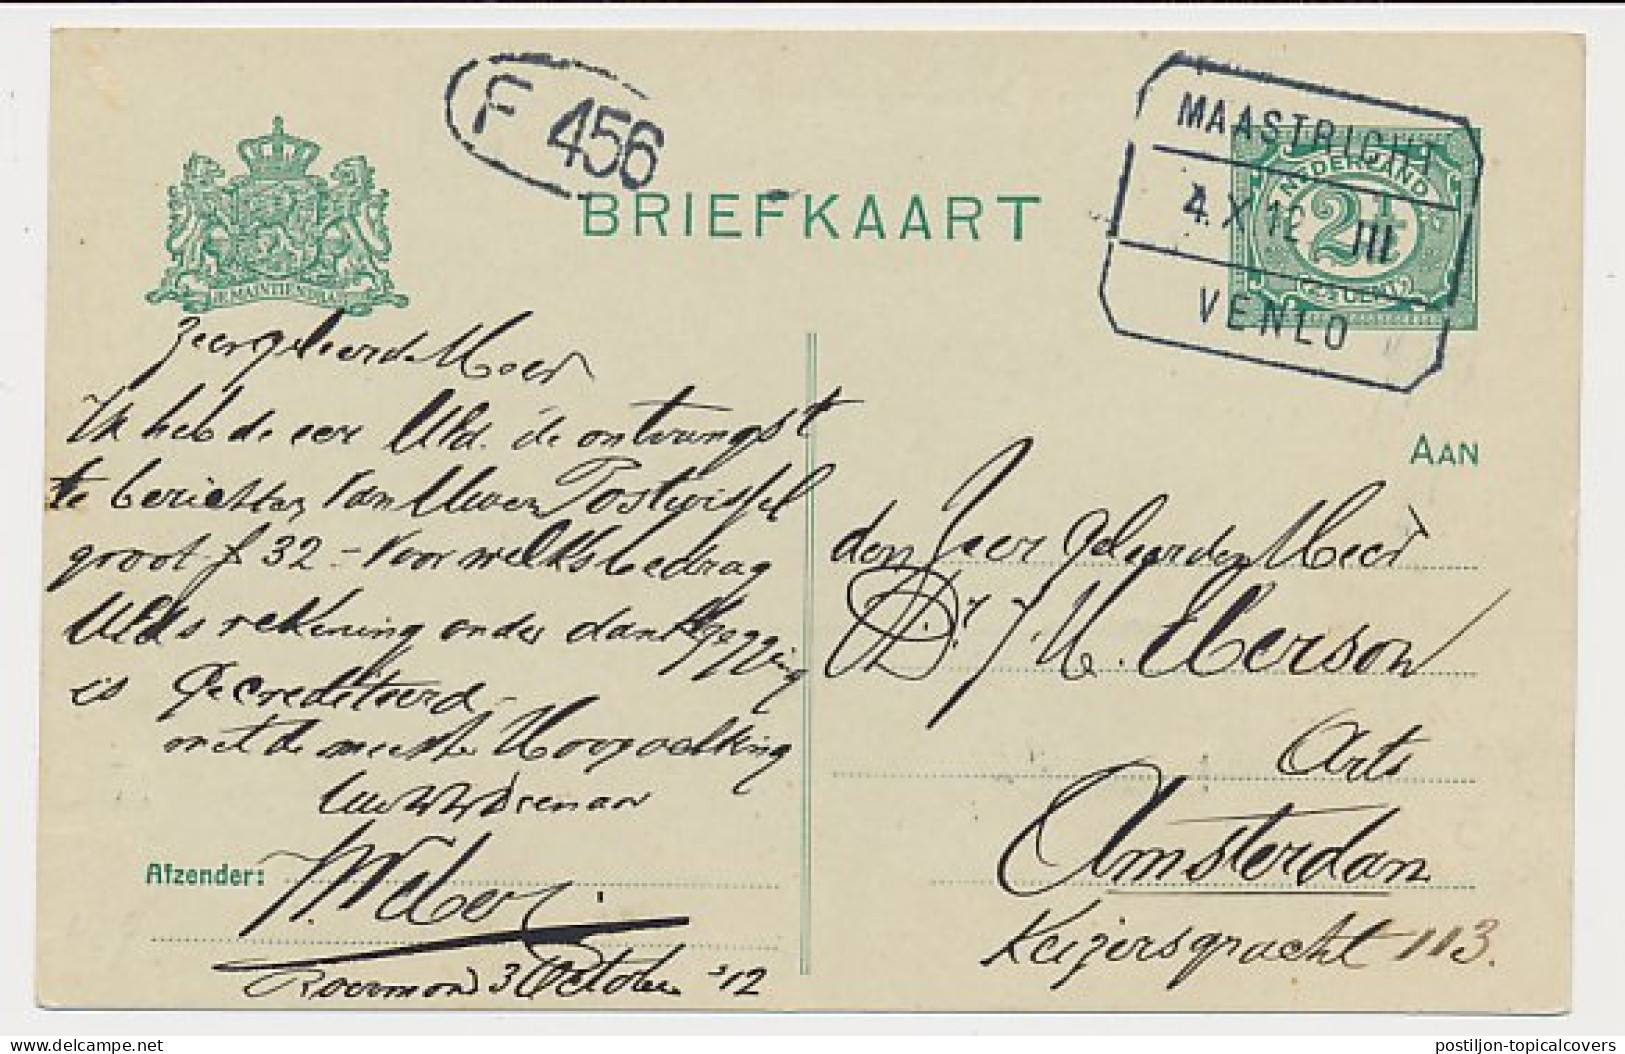 F 456
BRIEFKAART
MAASTRICHT
4.X.12 III
VENLO
NEDERLAND
2½
(2½ CENT)
JE MAINTIENDRAI
Zeergeleerde Heer
Ik heb de eer UEd. de ontvangst
te berichten van Uwen Postwissel
groot f 32 - voor welks bedrag
UEds rekening onder dankzegging
is gecrediteerd,
met de meeste Hoogachting
Uw Dienaar
Afzender: H. Weber
Roermond 3 October '12
AAN
den Zeer Geleerden Heer
Dr. J. H. Eberson
Arts
Amsterdam
Keizersgracht 113.
hipstamp.com
postiljon-topicalcovers